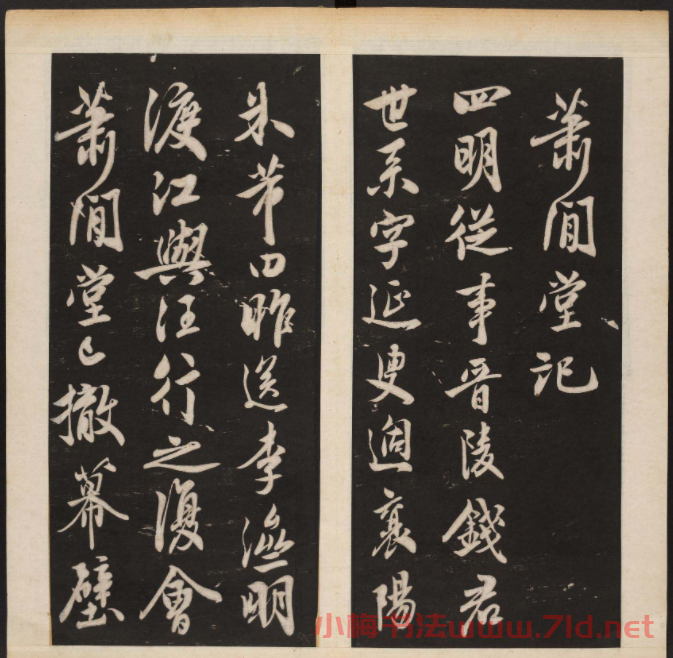 蕭閒堂記
四明從事晋陵錢君
世系字延叟過襄陽
米芾曰昨送李瀛明
渡江與汪行之復會
蕭閒堂已撤幕壁
小梅书法www.7ld.net